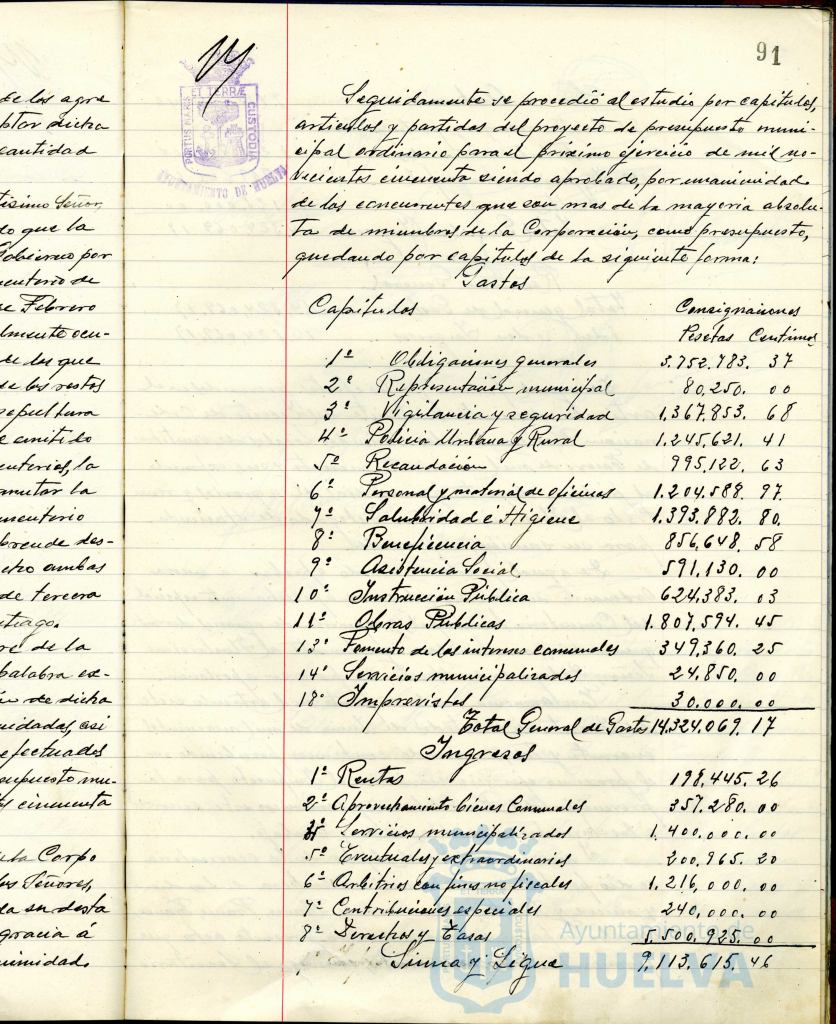 de los agre
ptar dicha
cantidad
tisimo Señor
do que la
Gobierno por
menterio de
de Febrero
lmente ocu-
de los que
de los restos
sepultura
e emitido
enterios, la
rmutar la
menterio
brende des-
cho ambas
de tercera
tiago.
re de la
palabra ex-
ón de dicha
uidadas, asi
efectuados
supuesto mu-
os cincuenta
la Corpo
los Señores,
da su desta
gracia á
nimidad.
91
PORTUS MARIS ET TERRAE CUSTODIA
AYUNTAMIENTO DE HUELVA
Seguidamente se procedió al estudio por capitulos,
articulos y partidas del proyecto de presupuesto muni-
cipal ordinario para el próximo ejercicio de mil no-
vecientos cincuenta siendo aprobado, por unanimidad
de los concurrentes que son mas de la mayoria absolu-
ta de miembros de la Corporación, como presupuesto,
quedando por capitulos de la siguiente forma:
Gastos
Capítulos Consignaciones
Pesetas Centimos
1º Obligaciones generales 3.752.783. 37
2º Representación municipal 80.250. 00
3º Vigilancia y seguridad 1.367.853. 68
4º Policia Urbana y Rural 1.245.621. 41
5º Recaudación 995.122. 63
6º Personal y material de oficinas 1.204.588. 97
7º Salubridad é Higiene 1.393.882. 80.
8º Beneficencia 856.648. 58
9º Asistencia Social 591.130. 00
10º Instrucción Pública 624.383. 03
11º Obras Públicas 1.807.594. 45
13º Fomento de los intereses comunales 349.360. 25
14º Servicios municipalizados 24.850. 00
18º Imprevistos 30.000. 00
Total General de Gastos 14.324.069. 17
Ingresos
1º Rentas 198.445. 26
2º Aprovechamiento bienes Comunales 357.280. 00
3º Servicios municipalizados 1.400.000. 00
5º Eventuales y extraordinarios 200.965. 20
6º Arbitrios con fines no fiscales 1.216.000. 00
7º Contribuciones especiales 240.000. 00
8º Derechos y Tasas 5.500.925. 00
Suma y Sigue 9.113.615. 46
Ayuntamiento de
HUELVA